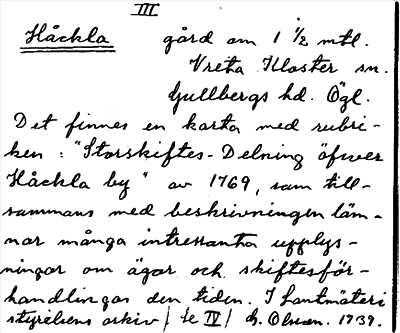 III
Håckla gård om 1 1/2 mtl.
Vreta Kloster sn.
Gullbergs hd. Ögl.
Det finnes en karta med rubri-
ken: "Storskiftes-Delning öfwer
Håckla by" av 1769, som till-
sammans med beskrivningen läm-
nar många intressanta upplys-
ningar om ägor och skiftesför-
handlingar den tiden. I Lantmäteri
styrelsens arkiv / Se IV / G. Olsson. 1939.